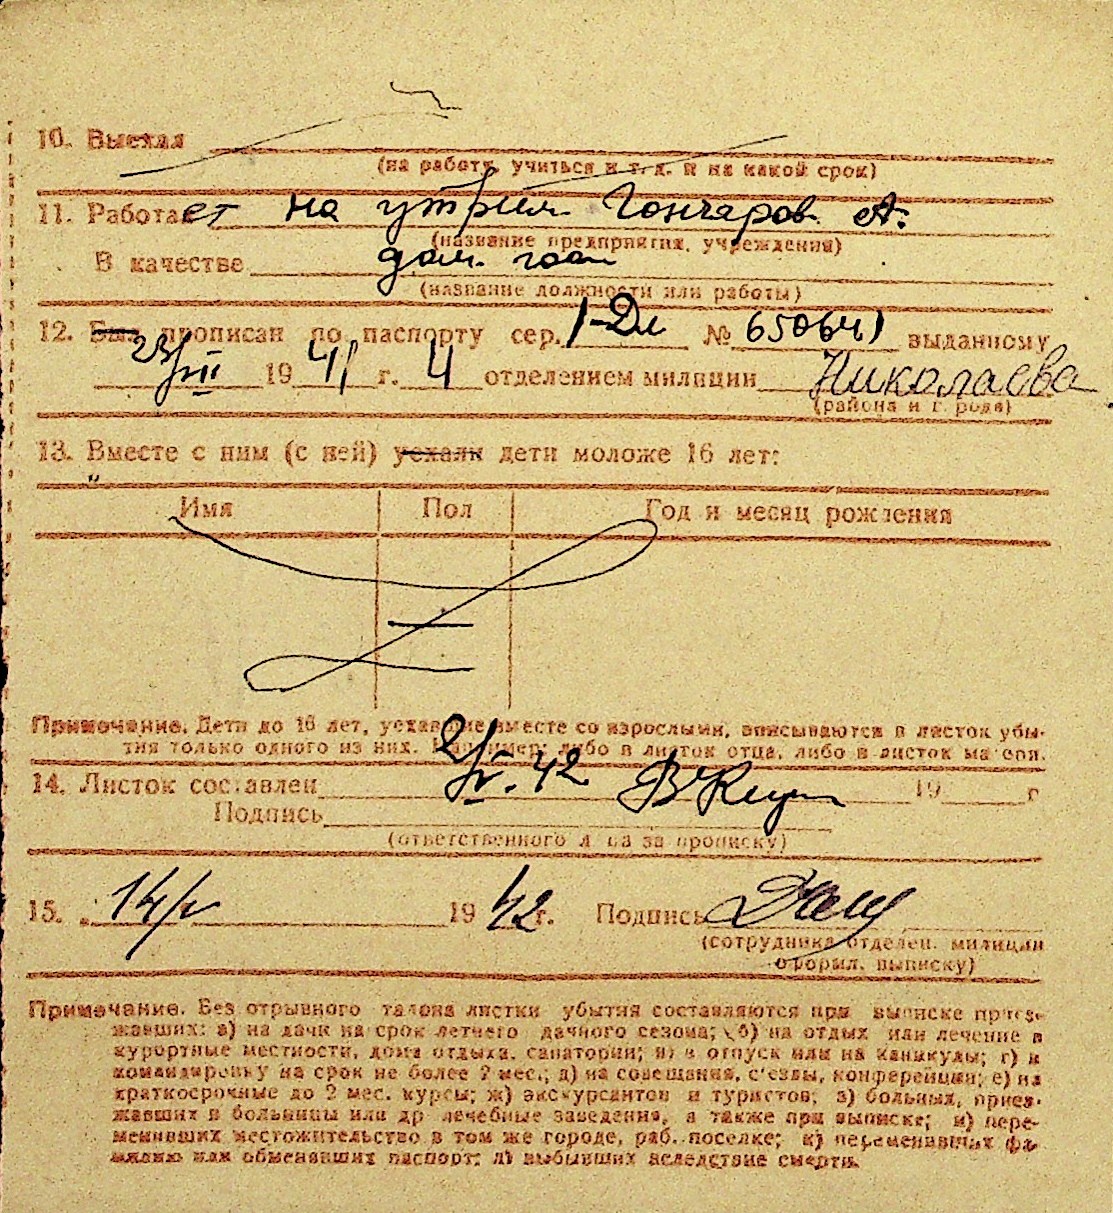 10. Выехал
(на работу, учиться и т. д. и на какой срок)
11. Работает на утрим. Гончаров А.
(название предприятия, учреждения)
В качестве дом.
(название должности или работы)
12. Был прописан по паспорту сер. № 650641 выданному
23/VII 1941 г. 4 отделением милиции Николаева
(района и города)
13. Вместе с ним (с ней) уехали дети моложе 16 лет:
Имя Пол Год и месяц рождения
Примечание. Дети до 16 лет, уехавшие вместе со взрослыми, вписываются в листок убы-
тия только одного из них. Например: либо в листок отца, либо в листок матери.
14. Листок составлен 42 19 г
Подпись
(ответственного лица за прописку)
15. 14/V 1942 г. Подпись
(сотрудника отделен. милиции
оформл. выписку)
Примечание. Без отрывного талона листки убытия составляются при выписке приез-
жавших: а) на дачи на срок летнего дачного сезона; б) на отдых или лечение в
курортные местности, дома отдыха, санатории; в) в отпуск или на каникулы; г) в
командировку на срок не более 2 мес.; д) на совещания, с'езды, конференции; е) на
краткосрочные до 2 мес. курсы; ж) экскурсантов и туристов; з) больных, приез-
жавших в больницы или др лечебные заведения, а также при выписке; и) пере-
менивших местожительство в том же городе, раб. поселке; к) переменивших фа-
милию или обменявших паспорт; л) выбывших вследствие смерти.